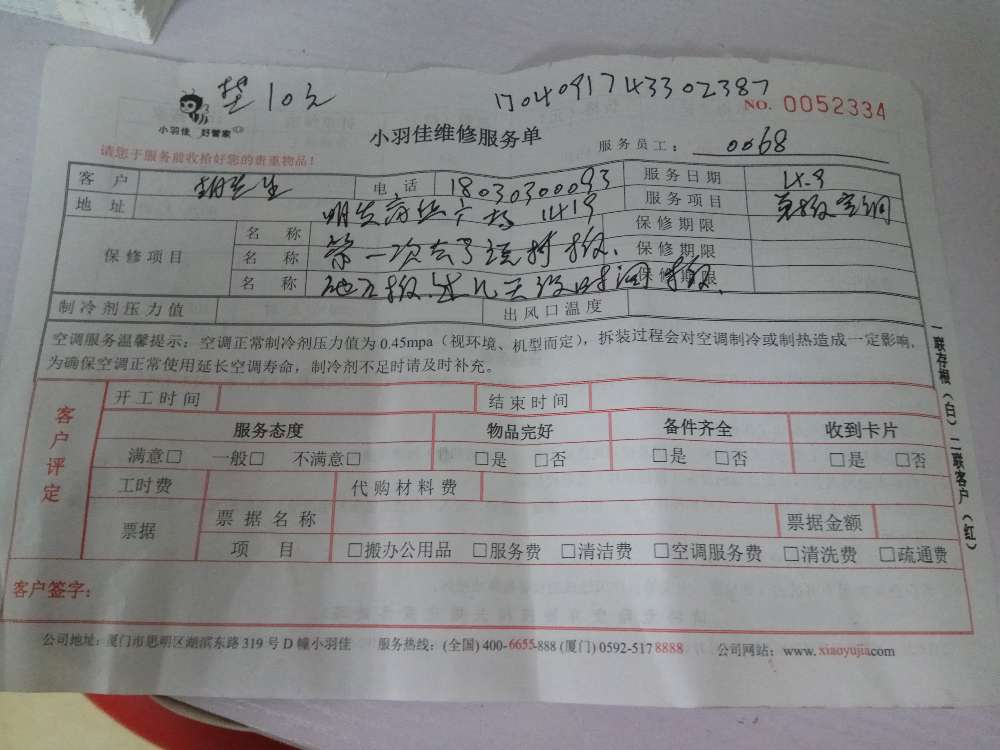 垫10元
1704091743302387
小羽佳 好管家
NO. 0052334
小羽佳维修服务单
服务员工: 0068
请您于服务前收拾好您的贵重物品!
客户 胡先生 电话 18030300093 服务日期 4.9
地址 1419 服务项目 空调
保修项目 名称 第一次去了 保修期限
名称 保修期限
名称 保修期限
制冷剂压力值 出风口温度
空调服务温馨提示:空调正常制冷剂压力值为0.45mpa(视环境、机型而定),拆装过程会对空调制冷或制热造成一定影响,
为确保空调正常使用延长空调寿命,制冷剂不足时请及时补充。
客户评定
开工时间 结束时间
服务态度 物品完好 备件齐全 收到卡片
满意□ 一般□ 不满意□ □是 □否 □是 □否 □是 □否
工时费 代购材料费
票据 票据名称 票据金额
项目 □搬办公用品 □服务费 □清洁费 □空调服务费 □清洗费 □疏通费
客户签字:
一联存根(白)二联客户(红)
公司地址:厦门市思明区湖滨东路319号D幢小羽佳 服务热线:(全国)400-6655-888(厦门)0592-5178888 公司网站:www.xiaoyujia.com